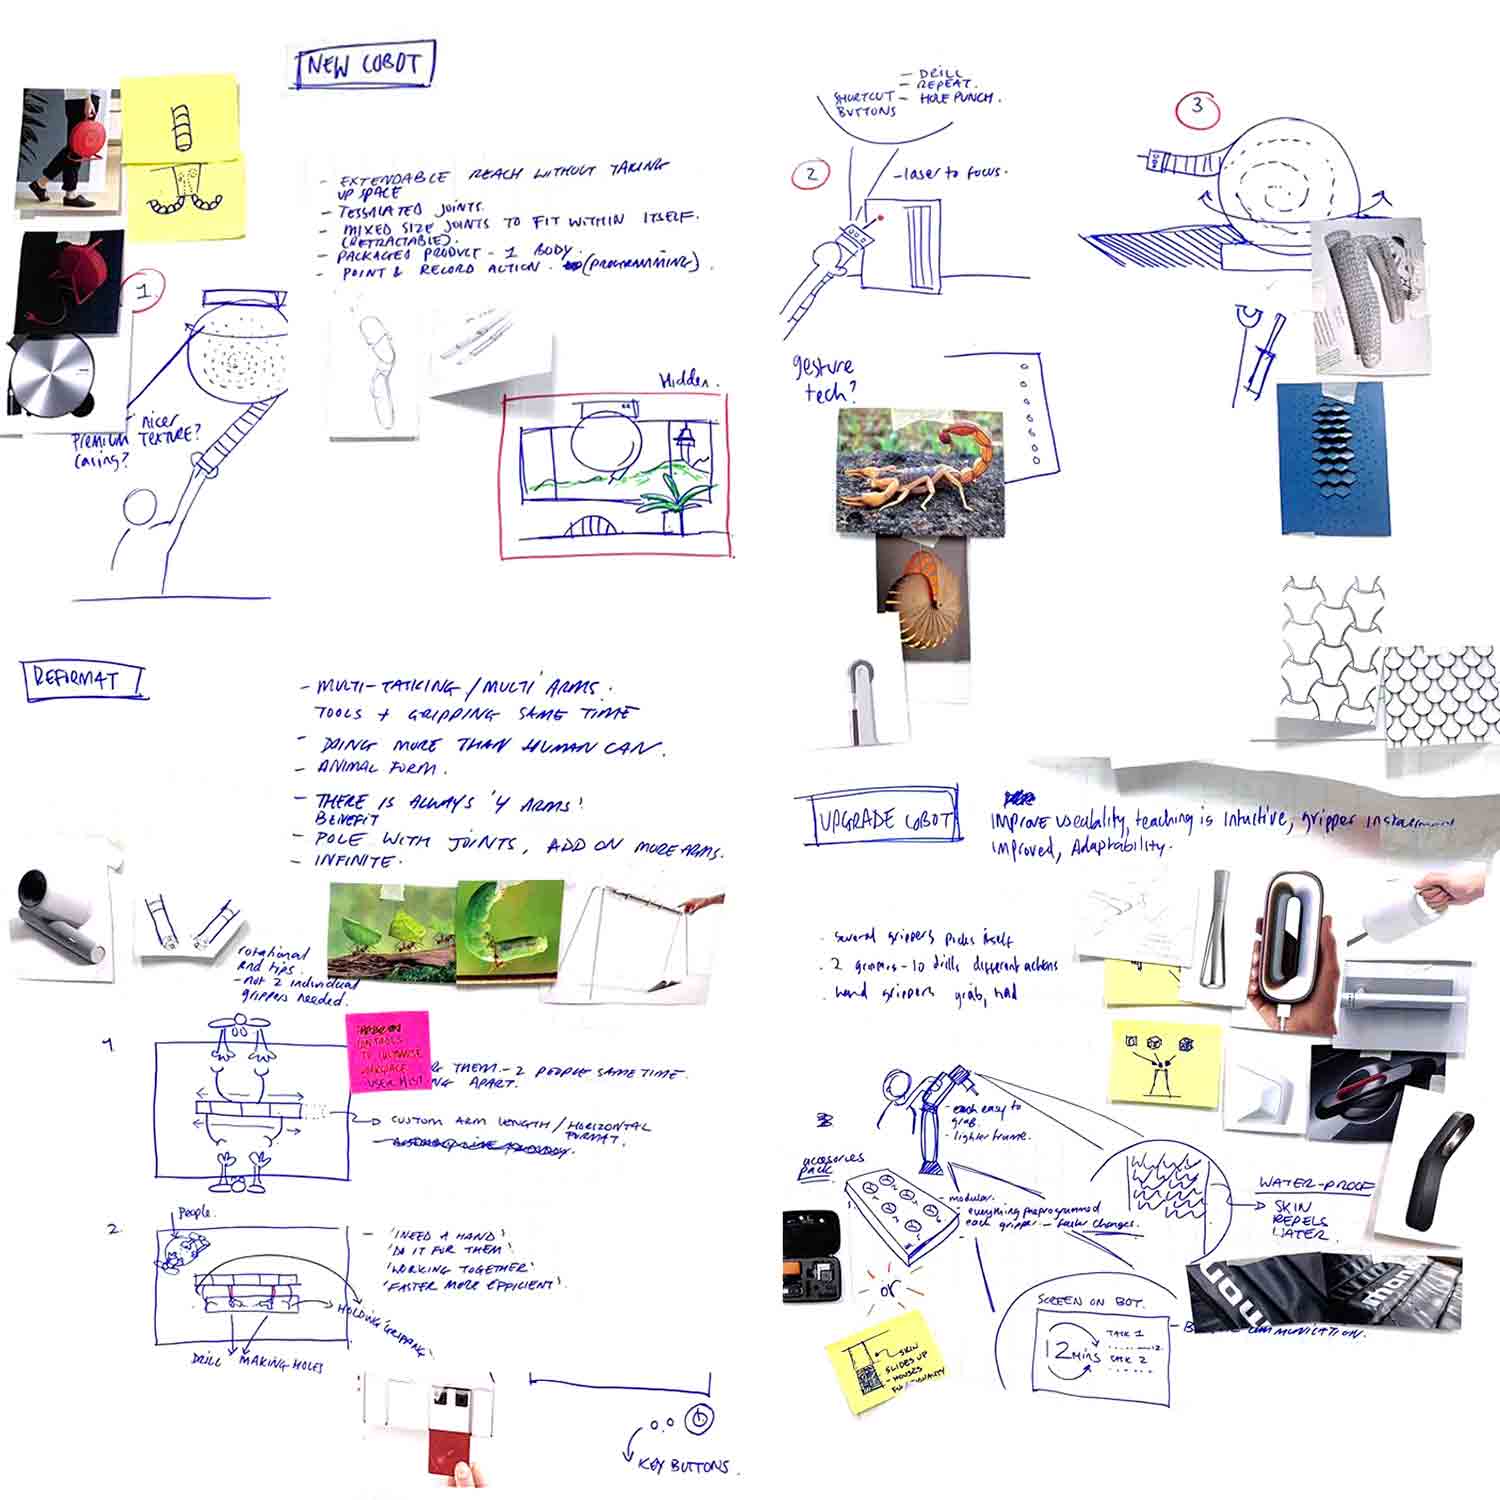 NEW COBOT
- EXTENDABLE REACH WITHOUT TAKING
UP SPACE
- TESSALATED JOINTS.
- MIXED SIZE JOINTS TO FIT WITHIN ITSELF.
(RETRACTABLE).
- PACKAGED PRODUCT - 1 BODY.
- POINT & RECORD ACTION. (PROGRAMMING).
1.
nicer
PREMIUM TEXTURE?
Casing?
Hidden.
- DRILL
- REPEAT.
SHORTCUT - HOLE PUNCH.
BUTTONS
2
- laser to focus.
3
gesture
tech?
REFORMAT
- MULTI-TASKING / MULTI ARMS.
TOOLS + GRIPPING SAME TIME
- DOING MORE THAN HUMAN CAN.
- ANIMAL FORM.
- THERE IS ALWAYS '4 ARMS'
BENEFIT
- POLE WITH JOINTS, ADD ON MORE ARMS.
- INFINITE.
rotational
end tips.
- not 2 individual
grippers needed.
1
CONTROLS
TO CUSTOMISE
USER
THEM - 2 PEOPLE SAME TIME.
APART.
CUSTOM ARM LENGTH / HORIZONTAL
FORMAT.
2.
People.
- 'I NEED A HAND'
'DO IT FOR THEM'
'WORKING TOGETHER'
'FASTER MORE EFFICIENT'.
HOLDING 'GRIPPING'
DRILL MAKING HOLES
KEY BUTTONS.
UPGRADE COBOT
Improve useability, teaching is intuitive, gripper
improved, Adaptability.
. several grippers picks itself
. 2 grippers - 10 drills different actions
. hand grippers grab, hold
- each easy to
grab.
- lighter frame.
accesories
pack
- modular.
- everything preprogrammed
each gripper - faster changes.
or
WATER-PROOF
SKIN
REPELS
WATER.
SKIN
SLIDES UP
- HOUSES
FUNCTIONALITY
SCREEN ON BOT.
12 MINS
TASK 1
12.
TASK 2
COMMUNICATION.